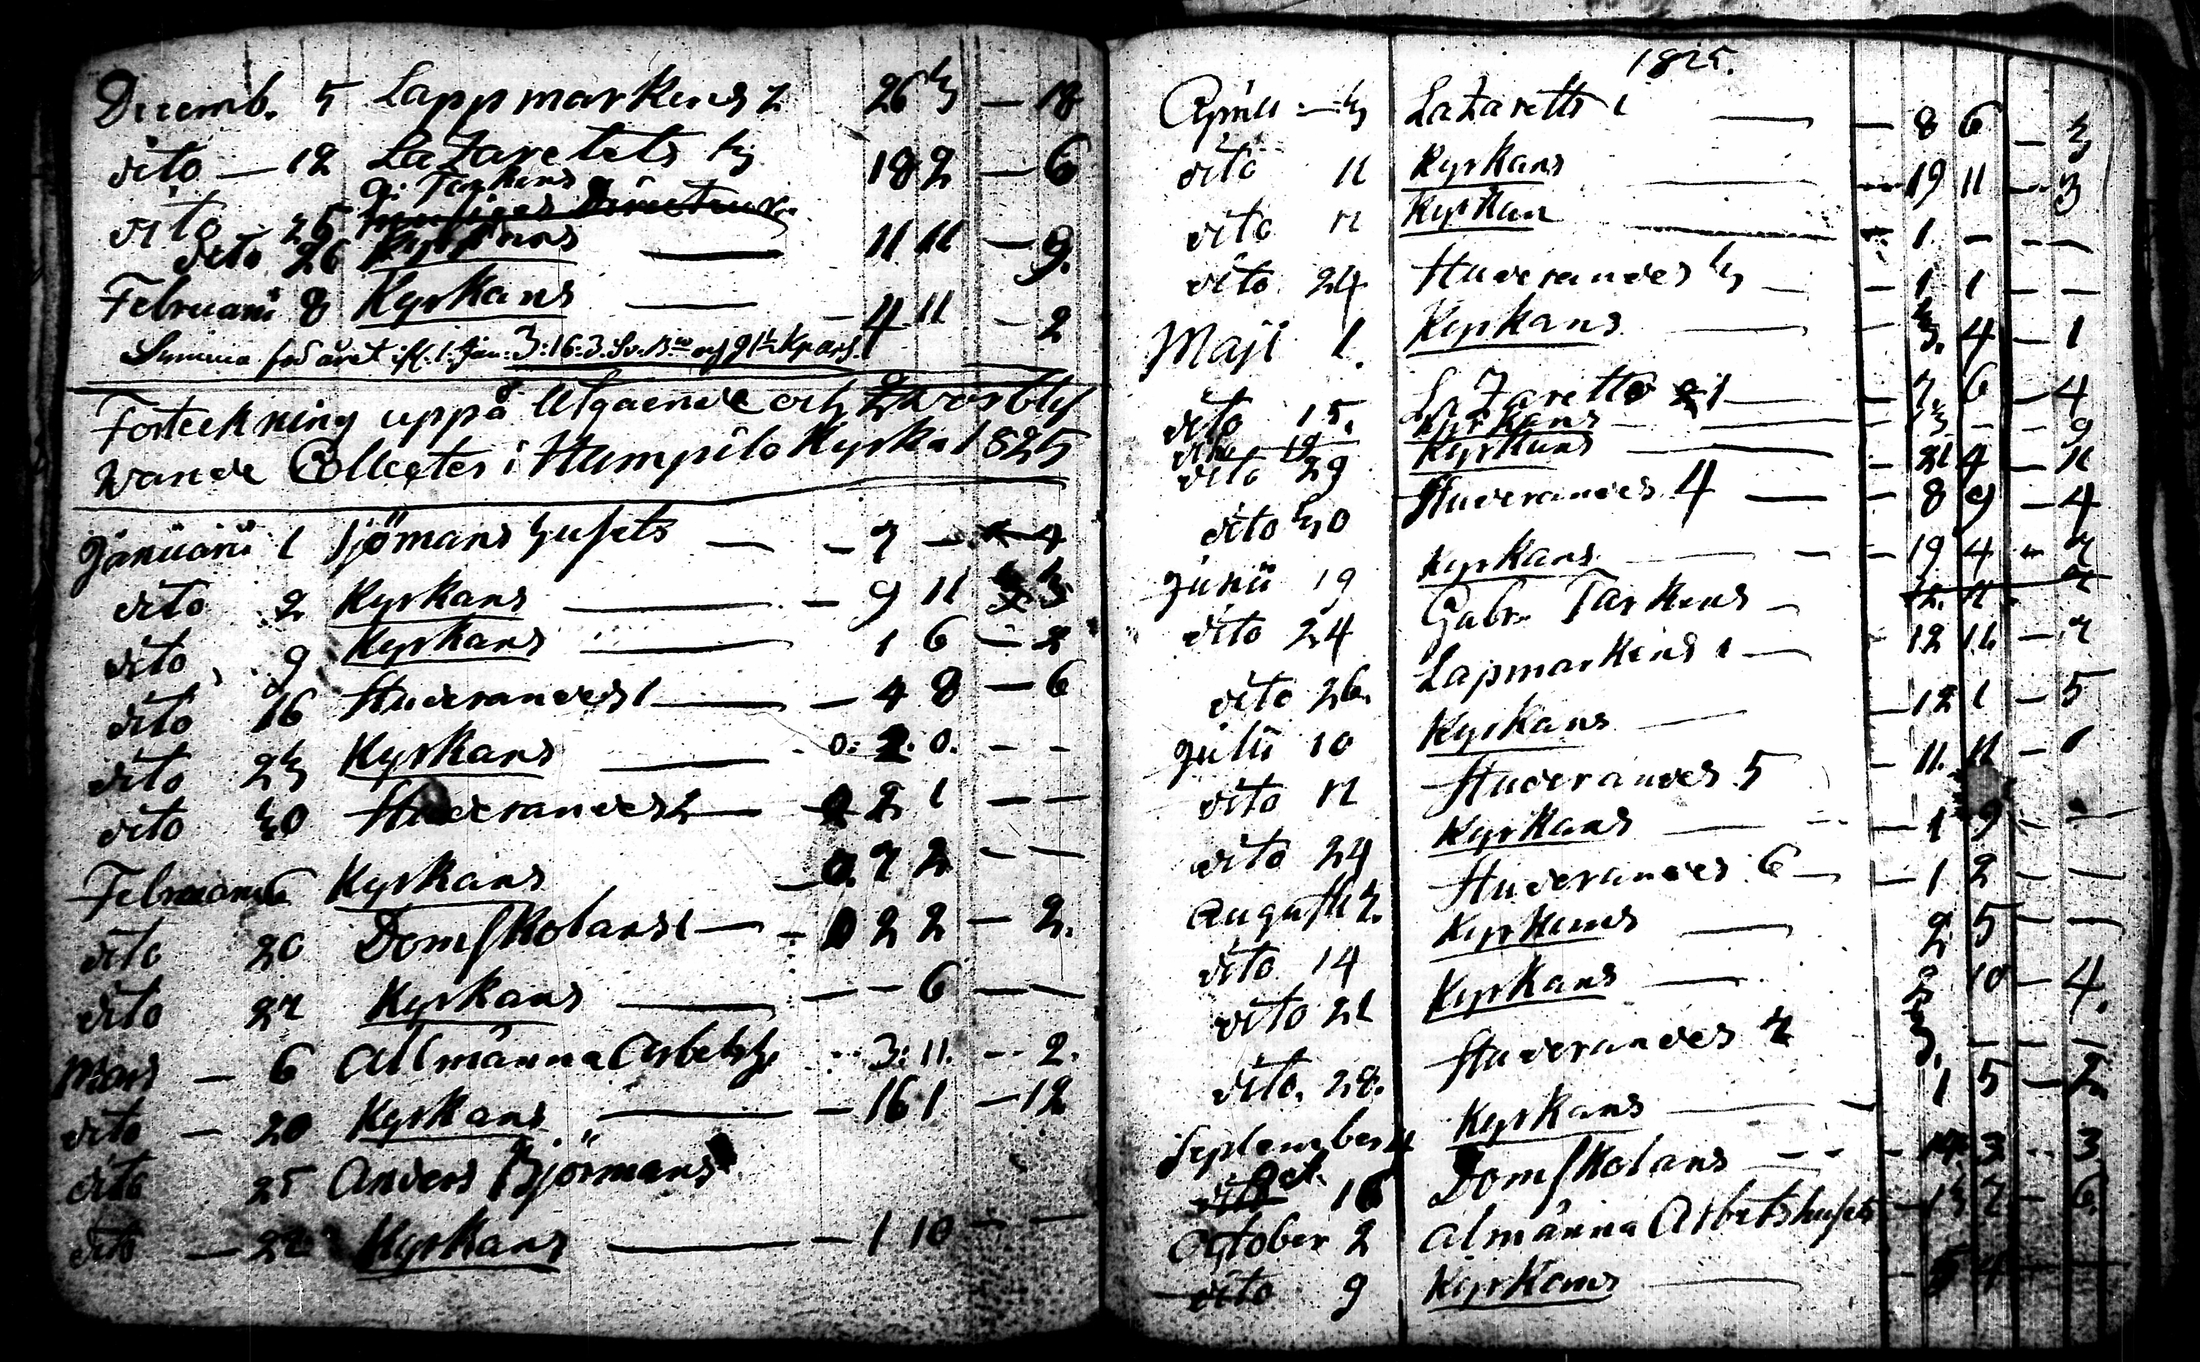 Decemb. 5 Lappmarkens 2 26 3 — 18
dito — 12 Lazaretets 3 18 2 — 6
G: Tarkens
dito 25
dito 26 Kyrkans — 11 11 — 9.
Februarii 8 Kyrkans — 4 11 — 2
Summa för året
Forteckning uppå Utgående och Qwarblif
wande Collecter i Humpila Kyrka 1825
Januarii 1 Sjömans husets — 7 — 4
dito 2 Kyrkans — 9 11 3
dito 9 Kyrkans — 1 6 — 2
dito 16 Studerandes 1 — 4 8 — 6
dito 23 Kyrkans — 0. 2. 0. — —
dito 30 Studerandes 2 — 2 1 — —
Februarii 6 Kyrkans — 0. 7 2 — —
dito 20 Domskolans 1 — 0 2 2 — 2.
dito 27 Kyrkans — — 6 — —
Mars — 6 Allmänna Arbetsh. 3: 11. — 2.
dito — 20 Kyrkans — 16 1 — 12
dito 25 Anders Björmans
dito — 27 Kyrkans — 1 10 — —
1825.
April — 3 Lazaretts 1 — 8 6 — 3
dito 11 Kyrkans — 19 11 — 3
dito 17 Kyrkan — 1 — — —
dito 24 Studerandes 3 — 1 1 — —
Maji 1. Kyrkans — 3. 4 — 1
dito 15. Lazaretts 1 — 7. 6 — 4
dito 19 Kyrkans — 13 — — 9
dito 29 Kyrkans — 21 4 — 11
dito 30 Studerandes 4 — 8 9 — 4
Junii 19 Kyrkans — 19 4 — 7
dito 24 Gabr. Tarkens — 12 11 — 7
dito 26. Lapmarkens 1 — 12 1 — 5
Julii 10 Kyrkans — 11. 11 — 1
dito 17 Studerandes 5
dito 24 Kyrkans — 1 9 — —
Augusti 7. Studerandes 6 — 1 2 — —
dito 14 Kyrkans — 2 5 — —
dito 21 Kyrkans — 2 10 — 4.
dito. 28. Studerandes 7
September 4 Kyrkans — 1 5 — 7
Oct. 16 Domskolans — 14. 3 — 3
October 2 Almänna Arbetshusets — 13 7 — 6
dito 9 Kyrkans — 5 4 — —